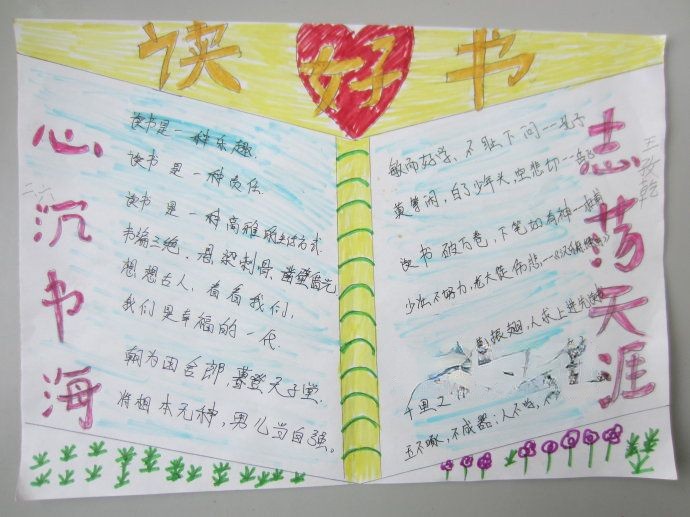 读好书
心沉书海
二六
读书是一种乐趣.
读书是一种责任.
读书是一种高雅的生活方式.
韦编三绝.悬梁刺骨.凿壁偷光
想想古人,看看我们,
我们是幸福的一代.
朝为田舍郎,暮登天子堂.
将相本无种,男儿当自强。
敏而好学、不耻下问--孔子
莫等闲,白了少年头,空悲切--岳飞
读书破万卷,下笔如有神--杜甫
少壮不努力,老大徒伤悲,--《汉乐府
振翅,人求上进先
千里之
玉不啄,不成器;人不学,不
志荡天涯
王孜乾